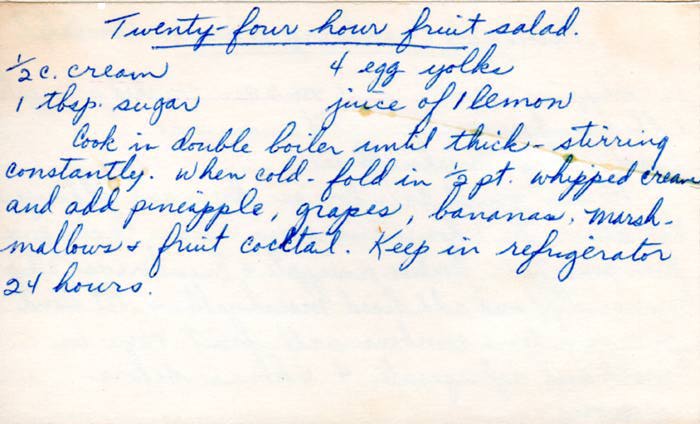 Twenty-four hour fruit salad.
1/2 c. cream 4 egg yolks
1 tbsp. sugar juice of 1 lemon
Cook in double boiler until thick - stirring
constantly. When cold - fold in 1/2 pt. whipped cream
and add pineapple, grapes, bananas, marsh-
mallows & fruit cocktail. Keep in refrigerator
24 hours.